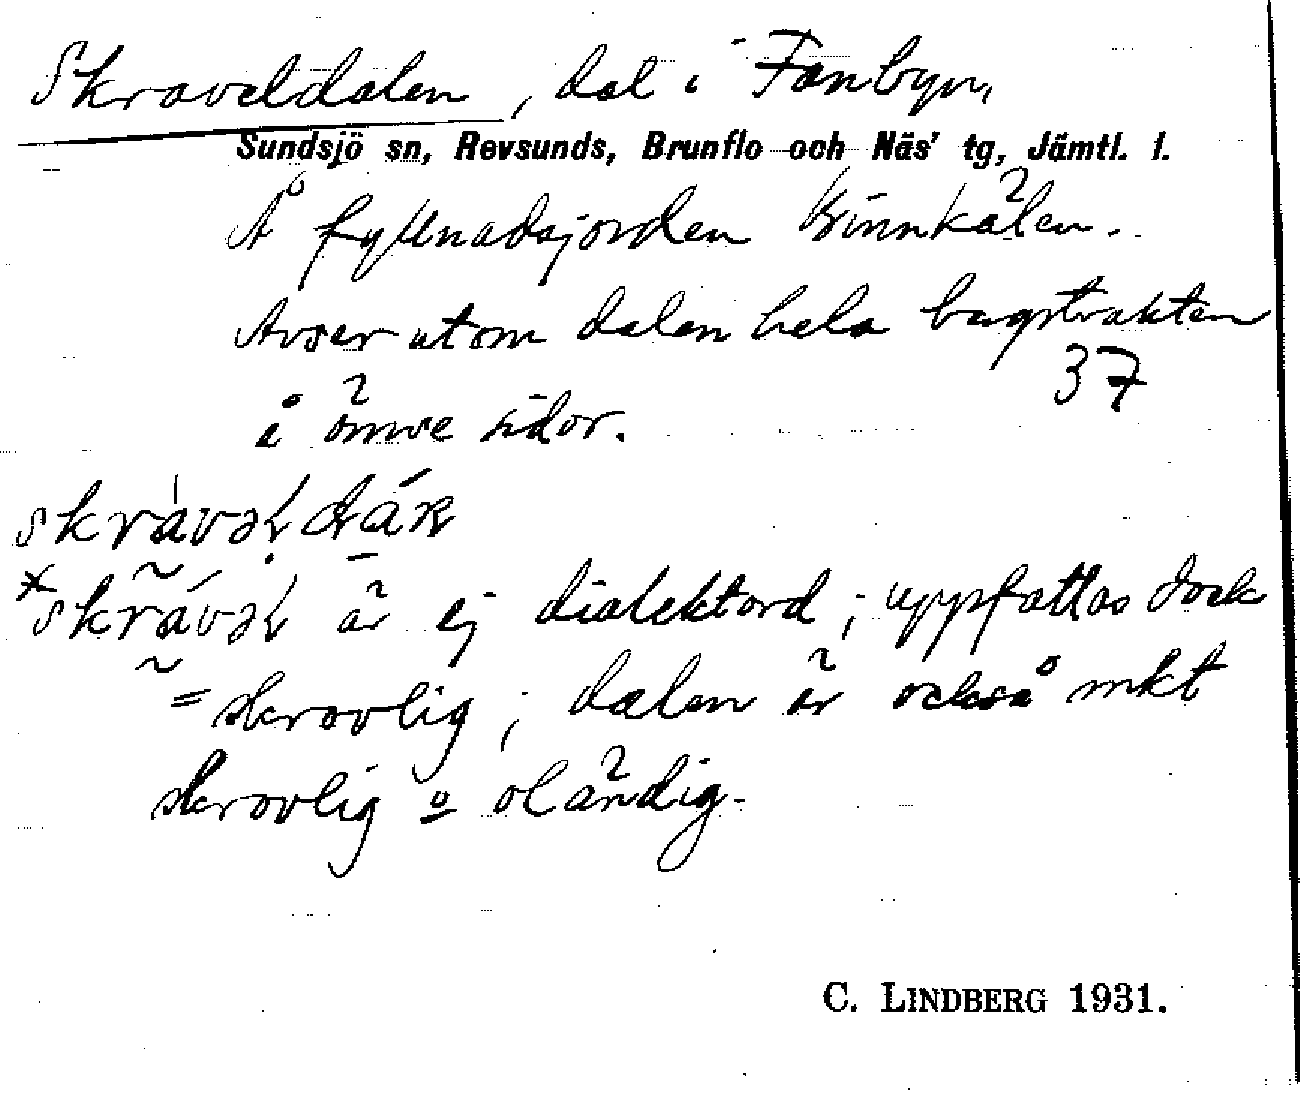 Skraveldalen, dal i Fanbyn,
Sundsjö sn, Revsunds, Brunflo och Näs' tg, Jämtl. l.
Å fyllnadsjorden Kinnkälen.
Avser utom dalen hela bergstrakten
37
å ömse sidor.
är ej dialektord; uppfattas dock
= skrovlig; dalen är också mkt
skrovlig o oländig.
C. LINDBERG 1931.